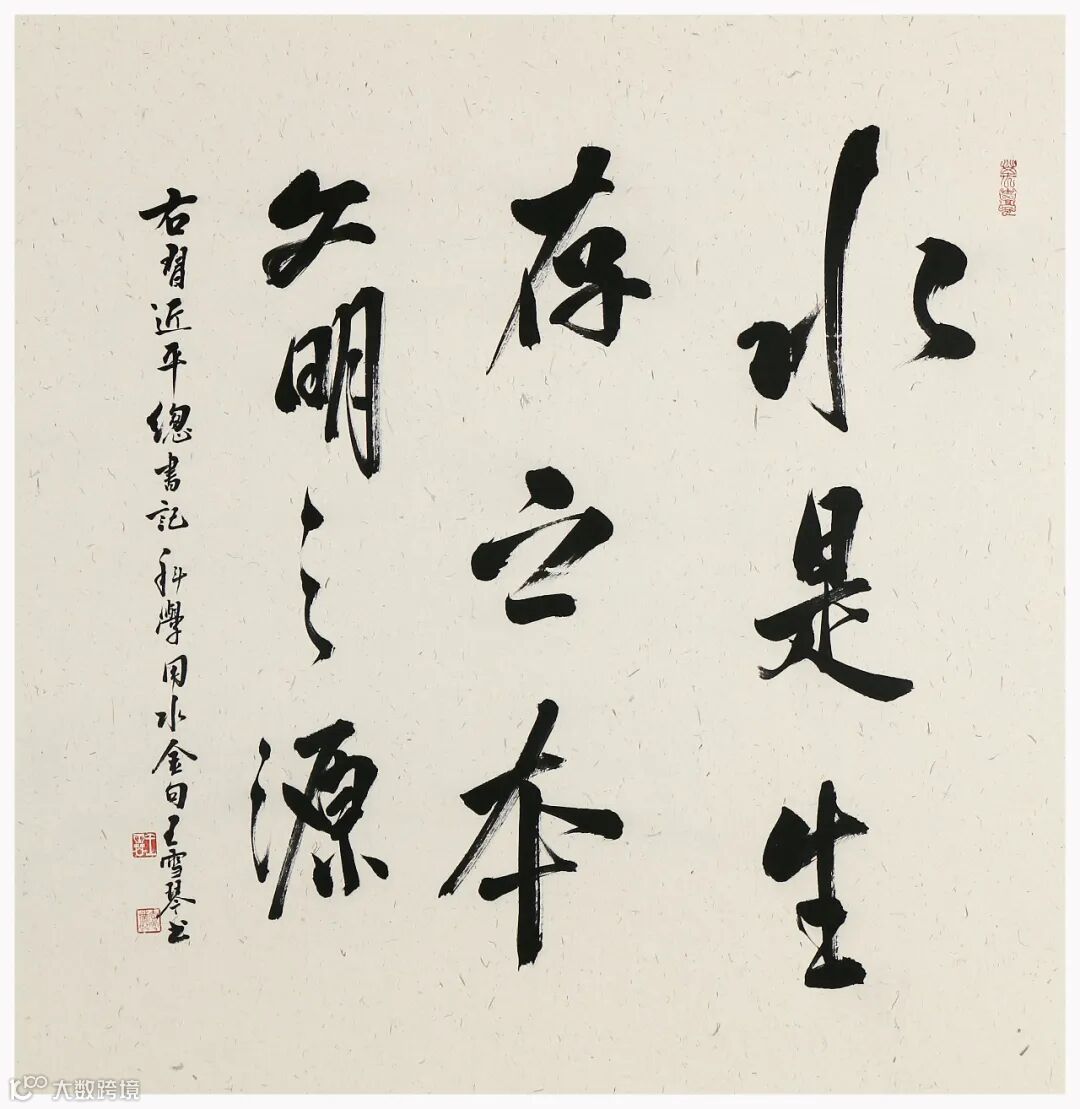 水是生
存之本
文明之源
右習近平總書記科學用水金句王雪琴书
大数跨境